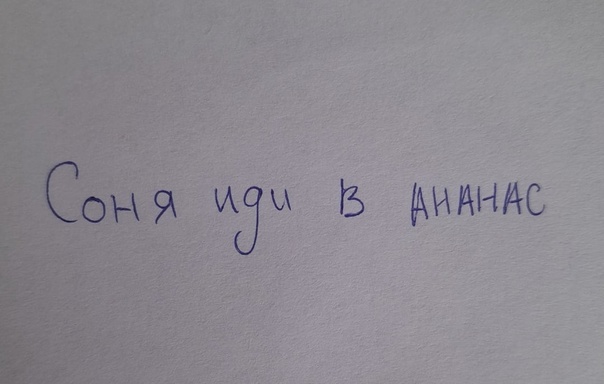 Соня иди в АНАНАС